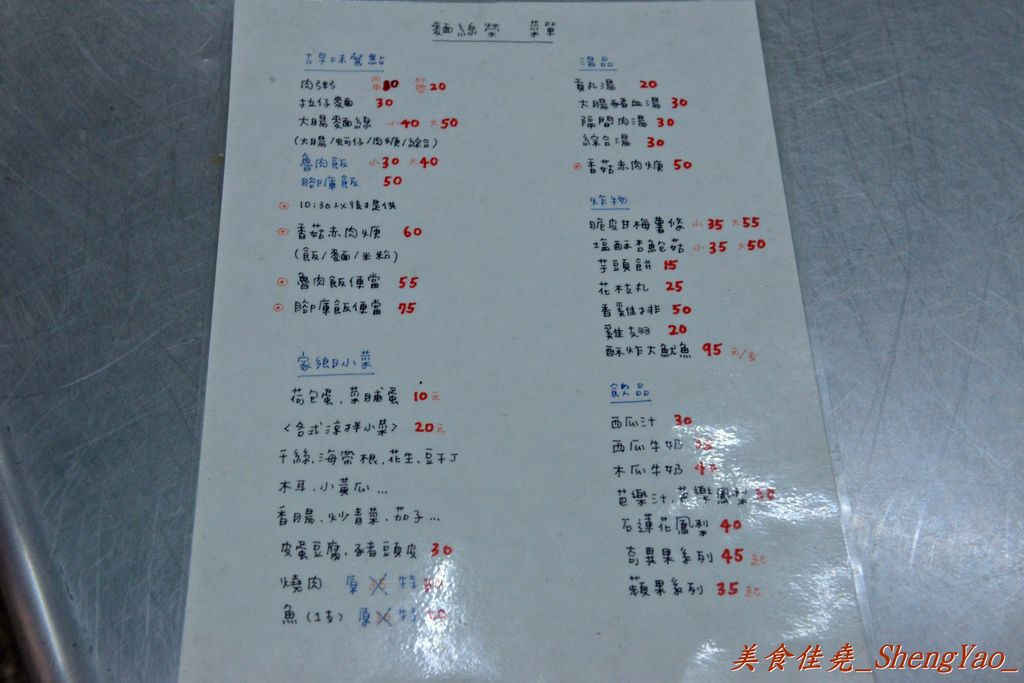 麵線榮 菜單
古早味餐點
肉粥 30 20
拉仔麵 30
大腸麵線 小40 大50
(大腸/蚵仔/肉焿/綜合)
魯肉飯 小30 大40
腳庫飯 50
10:30以後才提供
香菇赤肉焿 60
(飯/麵/米粉)
魯肉飯便當 55
腳庫飯便當 75
家鄉小菜
荷包蛋.菜脯蛋 10元
<各式涼拌小菜> 20元
干絲.海帶根.花生.豆干丁
木耳.小黃瓜...
香腸.炒青菜.茄子...
皮蛋豆腐.豬頭皮 30
燒肉 原 特
魚(1支) 原 特
湯品
貢丸湯 20
大腸豬血湯 30
隔間肉湯 30
綜合湯 30
香菇赤肉焿 50
炸物
脆皮甘梅薯條 小35 大55
塩酥杏鮑菇 小35 大50
芋頭餅 15
花枝丸 25
香雞排 50
雞翅 20
酥炸大魷魚 95元/支
飲品
西瓜汁 30
西瓜牛奶
木瓜牛奶
芭樂汁.芭樂鳳梨 30
石蓮花鳳梨 40
奇異果系列 45起
蘋果系列 35起
美食佳堯_ShengYao_